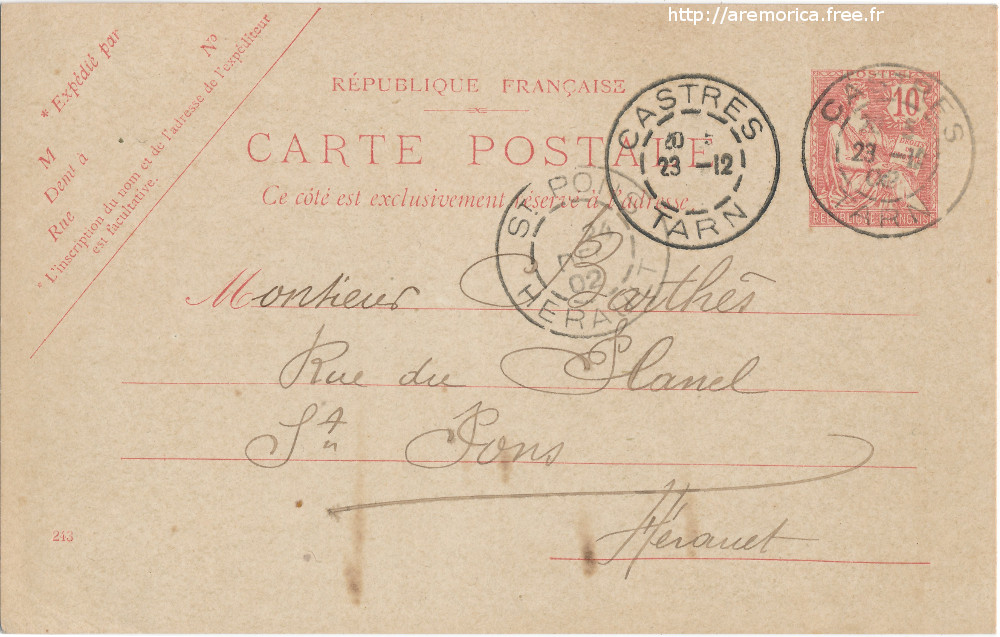 http://aremorica.free.fr
* Expédié par
M
No
Demt à
Rue
* L'inscription du nom et de l'adresse de l'expéditeur
est facultative.
RÉPUBLIQUE FRANÇAISE
CARTE POSTALE
Ce côté est exclusivement réservé à l'adresse
CASTRES
23 -12
TARN
POSTES
10
CASTRES
23 -12
TARN
REPUBLIQUE FRANÇAISE
ST PONS
02
HERAULT
Monsieur Barthès
Rue du Planel
St Pons
Hérault
243